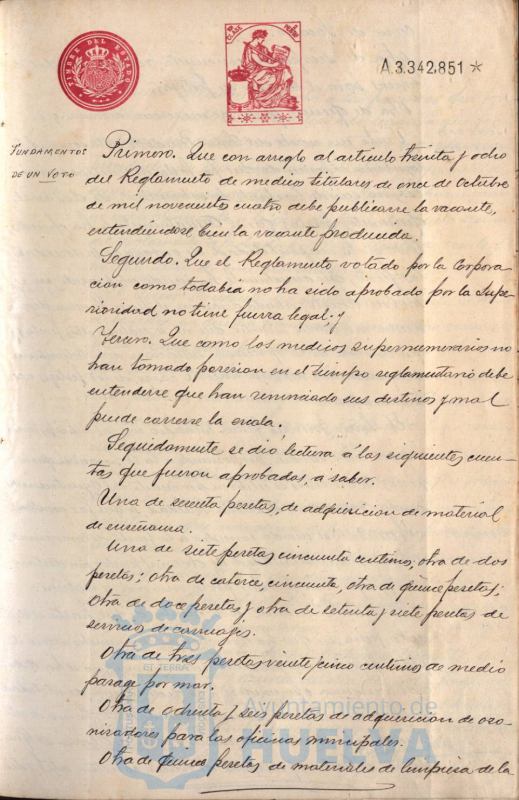 TIMBRE DEL ESTADO
CLASE
A.3.342.851 *
FUNDAMENTOS
DE UN VOTO
Primero. Que con arreglo al articulo treinta y ocho
del Reglamento de medicos titulares de once de Octubre
de mil novecientos cuatro debe publicarse la vacante,
entendiéndose bien la vacante producida.
Segundo. Que el Reglamento votado por la Corpora-
cion como todabia no ha sido aprobado por la Supe-
rioridad no tiene fuerza legal. y
Tercero. Que como los medicos supernumerarios no
han tomado posesion en el tiempo reglamentario debe
entenderse que han renunciado sus destinos y mal
puede correrse la escala.
Seguidamente se dió lectura á las siguientes cuen-
tas que fueron aprobadas, á saber.
Una de sesenta pesetas, de adquisicion de material
de enseñanza.
Una de siete pesetas cincuenta centimos, otra de dos
pesetas; otra de catorce, cincuenta, otra de quince pesetas;
otra de doce pesetas y otra de setenta y siete pesetas de
servicio de carruajes.
Otra de tres pesetas veinte y cinco centimos de medio
pasage por mar.
Otra de ochenta y seis pesetas de adquisicion de ozo-
nizadores para las oficinas municipales.
Otra de quince pesetas de materiales de limpieza de la
Ayuntamiento de
HUELVA